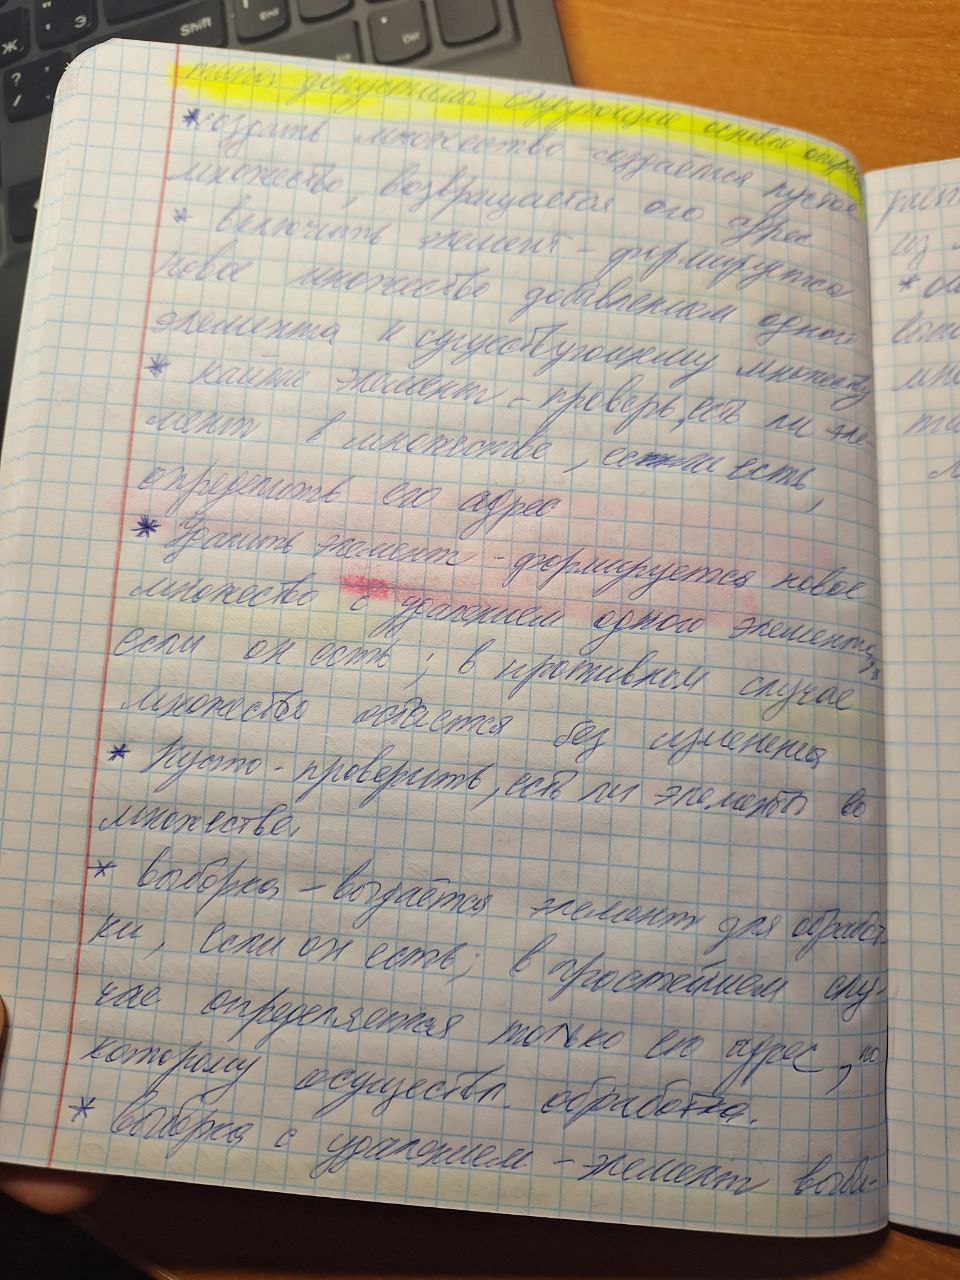 типа допустимы следующие основные опера-
*создать множество - создаётся пустое
множество, возвращается его адрес
* включить элемент - формируется
новое множество добавлением одного
элемента к существующему множеству
* найти элемент - проверь, есть ли эле-
мент в множестве, если есть,
определить его адрес
* Удалить элемент - формируется новое
множество с удалением одного элемента,
если он есть; в противном случае
множество остаётся без изменения
* Пусто - проверить, есть ли элементы во
множестве.
* выборка - выдаётся элемент для обработ-
ки, если он есть; в простейшем слу-
чае определяется только его адрес, по
которому осуществл. обработка.
* Выборка с удалением - элемент выби-
из
*